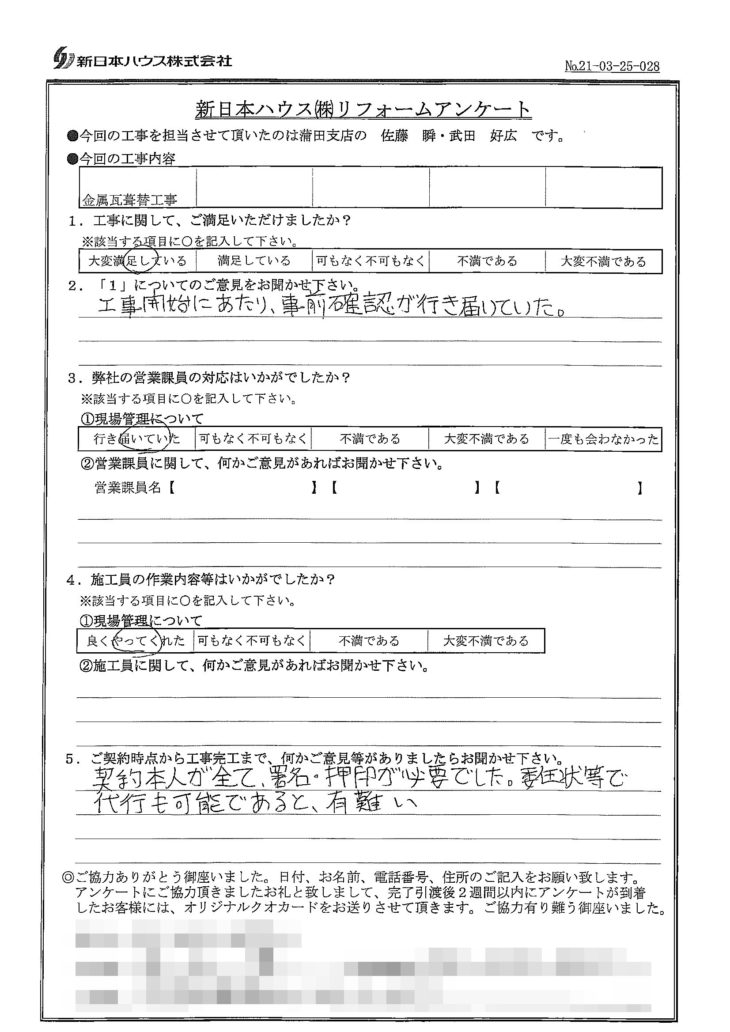 新日本ハウス株式会社
№21-03-25-028
新日本ハウス㈱リフォームアンケート
●今回の工事を担当させて頂いたのは蒲田支店の 佐藤 瞬・武田 好広 です。
●今回の工事内容
金属瓦葺替工事
1．工事に関して、ご満足いただけましたか？
※該当する項目に○を記入して下さい。
大変満足している 満足している 可もなく不可もなく 不満である 大変不満である
2．「1」についてのご意見をお聞かせ下さい。
工事開始にあたり、事前確認が行き届いていた。
3．弊社の営業課員の対応はいかがでしたか？
※該当する項目に○を記入して下さい。
①現場管理について
行き届いていた 可もなく不可もなく 不満である 大変不満である 一度も会わなかった
②営業課員に関して、何かご意見があればお聞かせ下さい。
営業課員名【 】【 】【 】
4．施工員の作業内容等はいかがでしたか？
※該当する項目に○を記入して下さい。
①現場管理について
良くやってくれた 可もなく不可もなく 不満である 大変不満である
②施工員に関して、何かご意見があればお聞かせ下さい。
5．ご契約時点から工事完工まで、何かご意見等がありましたらお聞かせ下さい。
契約本人が全て、署名・押印が必要でした。委任状等で
代行も可能であると、有難い
◎ご協力ありがとう御座いました。日付、お名前、電話番号、住所のご記入をお願い致します。
アンケートにご協力頂きましたお礼と致しまして、完了引渡後２週間以内にアンケートが到着
したお客様には、オリジナルクオカードをお送りさせて頂きます。ご協力有り難う御座いました。